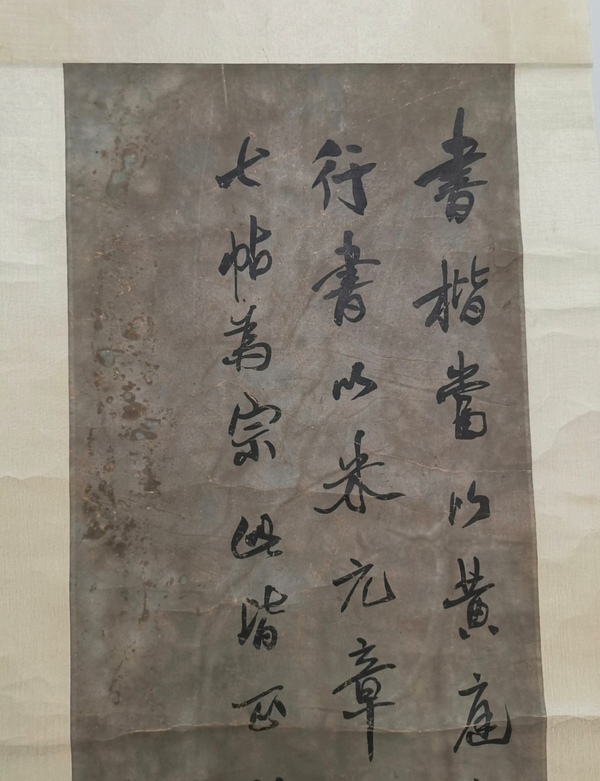 書楷當以黄庭
行書以米元章
七帖為宗此皆正